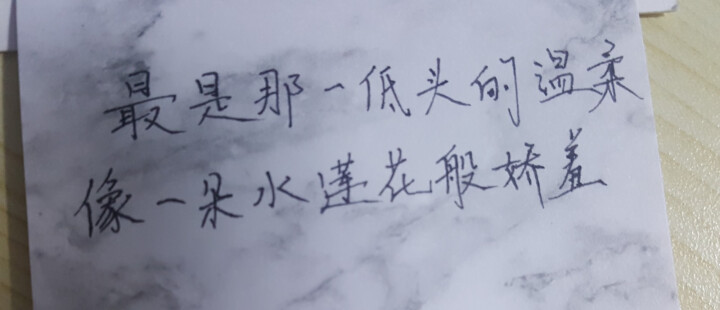 最是那一低头的温柔
像一朵水莲花般娇羞